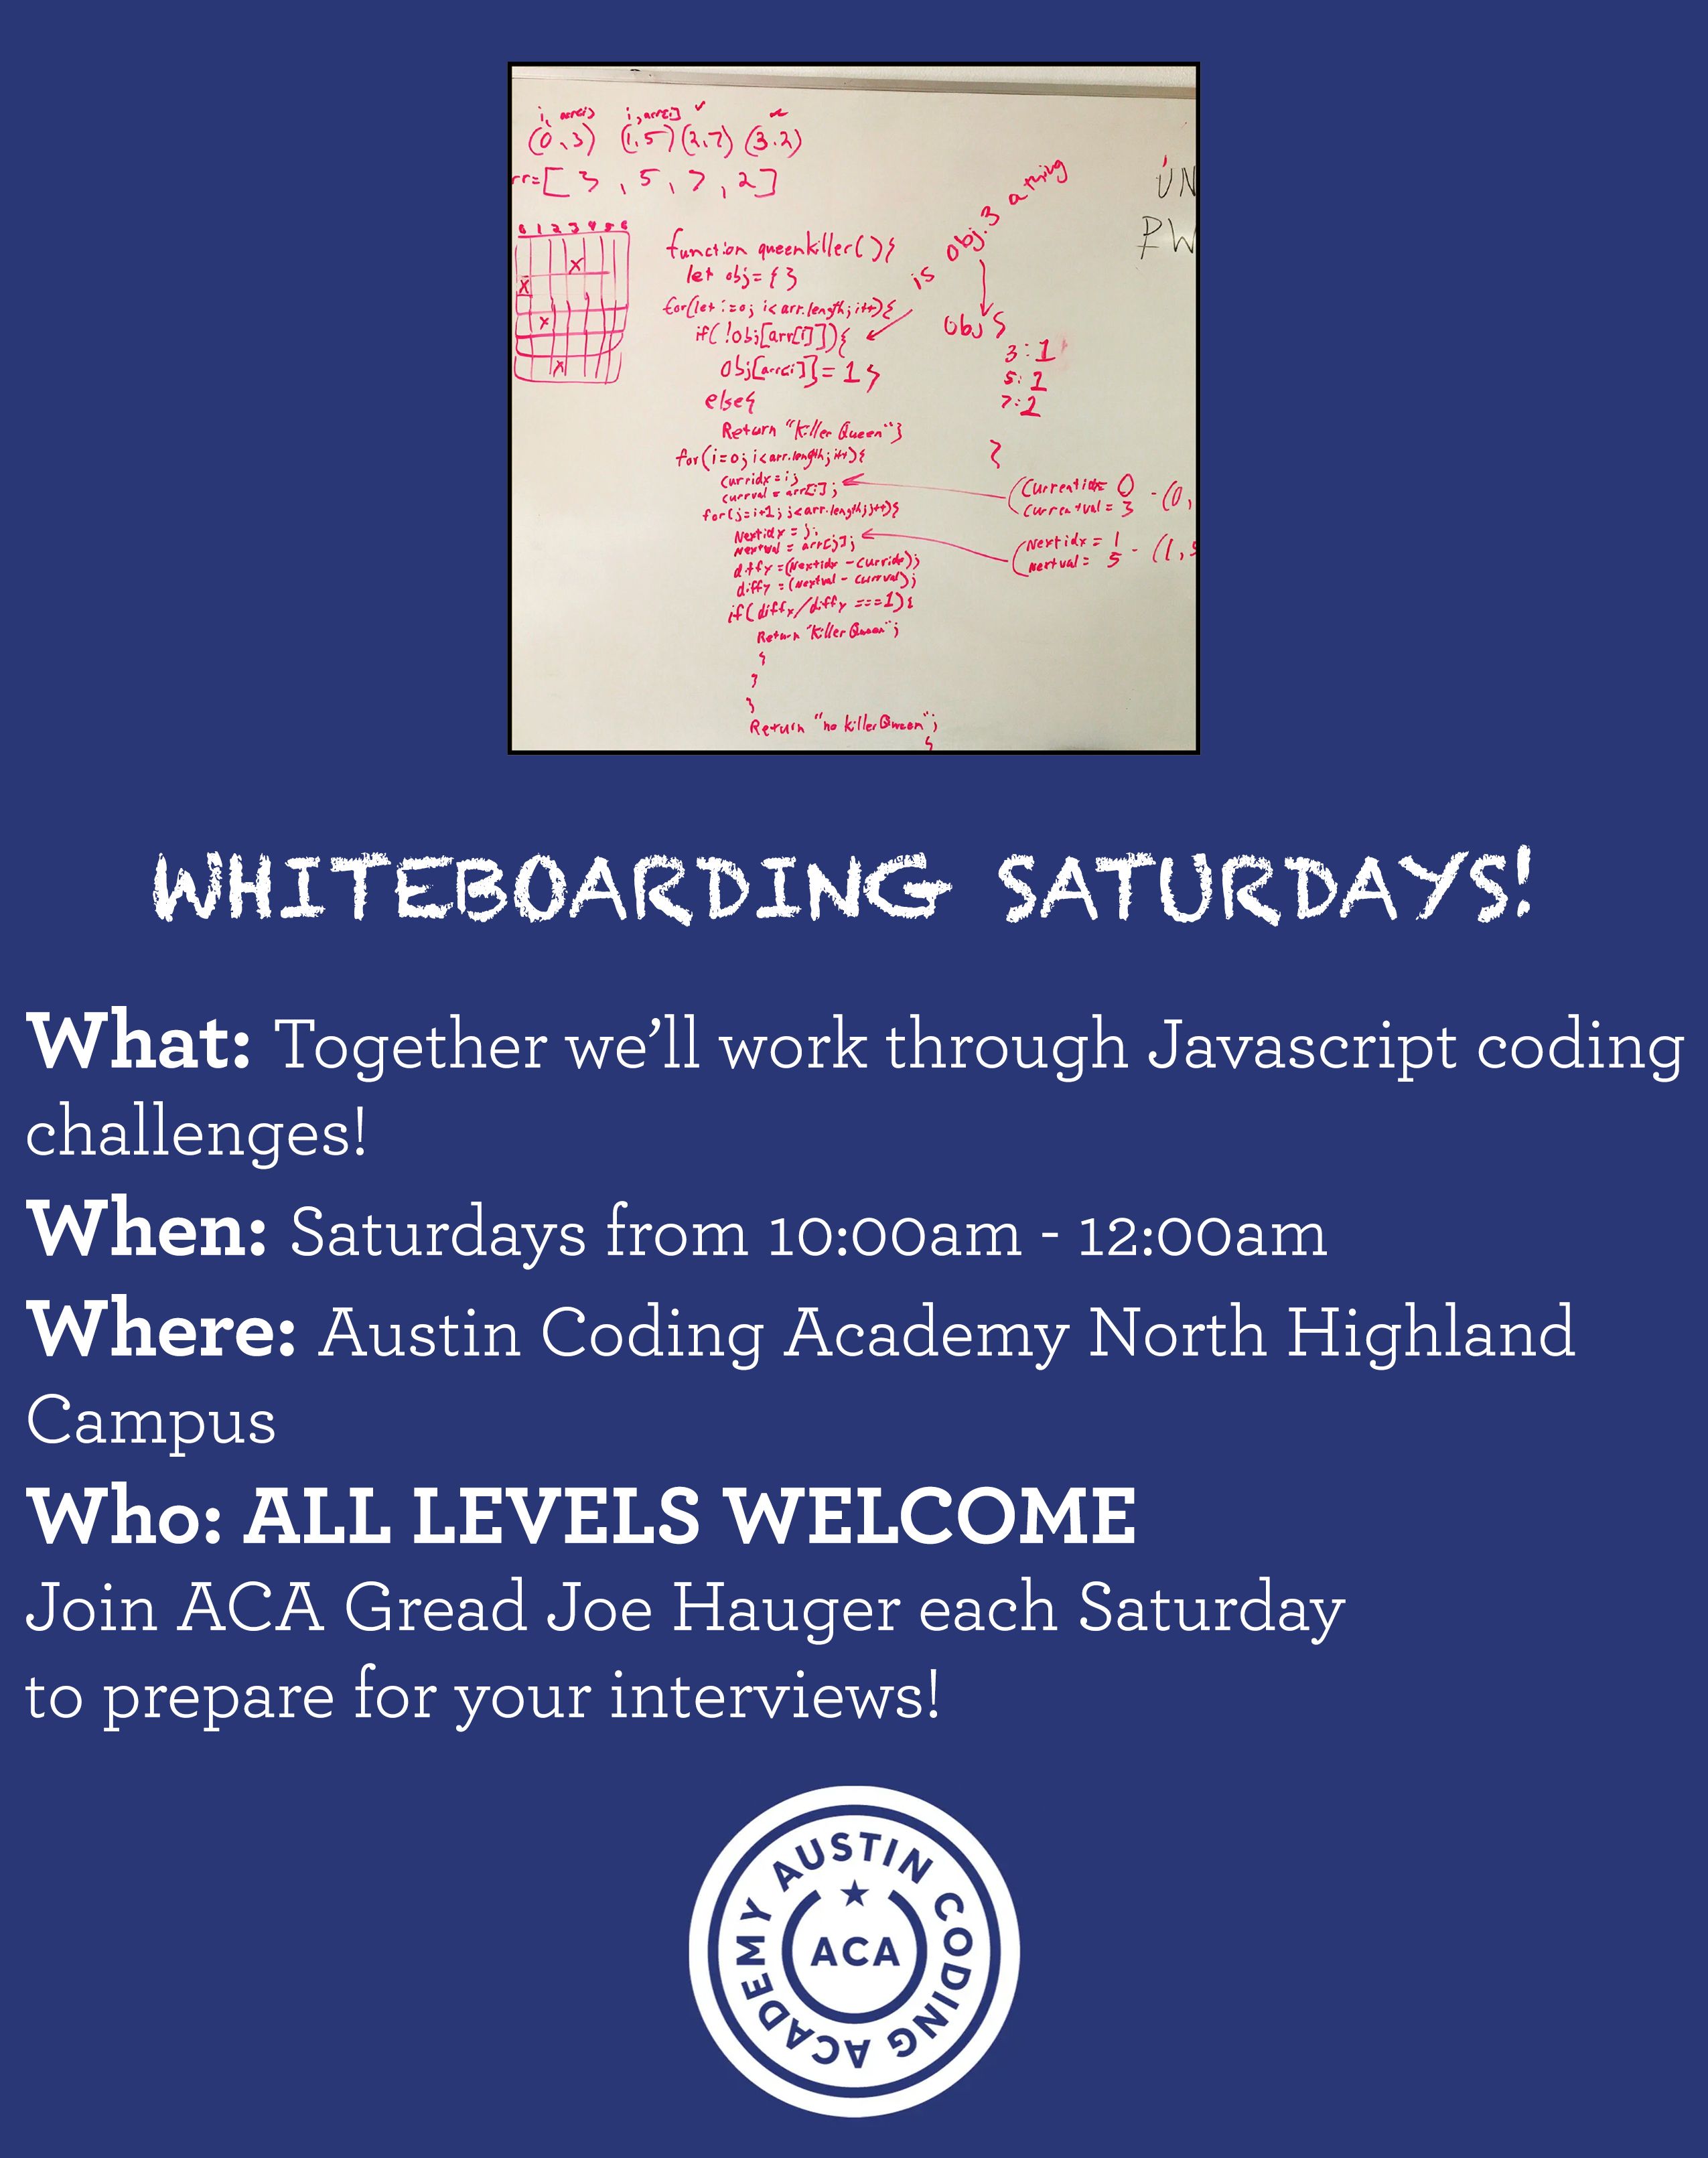 i, arr[i] i, arr[i]
(0,3) (1,5) (2,7) (3,2)
rr=[3, 5, 7, 2]
0 1 2 3 4 5 6
X
X
X
X
function queenkiller(){
let obj={}
for(let i=0; i<arr.length; i++){
if( !obj[arr[i]]){
obj[arr[i]]=1}
else{
Return "Killer Queen"}
for(i=0; i<arr.length; i++){
curridx = i;
currval = arr[i];
for(j=i+1; j<arr.length; j++){
Nextidx = j;
Nextval = arr[j];
diffx =(Nextidx - curridx);
diffy =(Nextval - currval);
if(diffx/diffy ===1){
Return "Killer Queen";
}
}
}
Return "no killer Queen";
}
is obj.3 a thing
obj {
3:1
5:1
7:1
}
(Currentidx= 0 - (0,
Currentval= 3
(Nextidx = 1 - (1, 5
Nextval = 5
UN
PW
WHITEBOARDING SATURDAYS!
What: Together we'll work through Javascript coding
challenges!
When: Saturdays from 10:00am - 12:00am
Where: Austin Coding Academy North Highland
Campus
Who: ALL LEVELS WELCOME
Join ACA Gread Joe Hauger each Saturday
to prepare for your interviews!
AUSTIN CODING ACADEMY
ACA